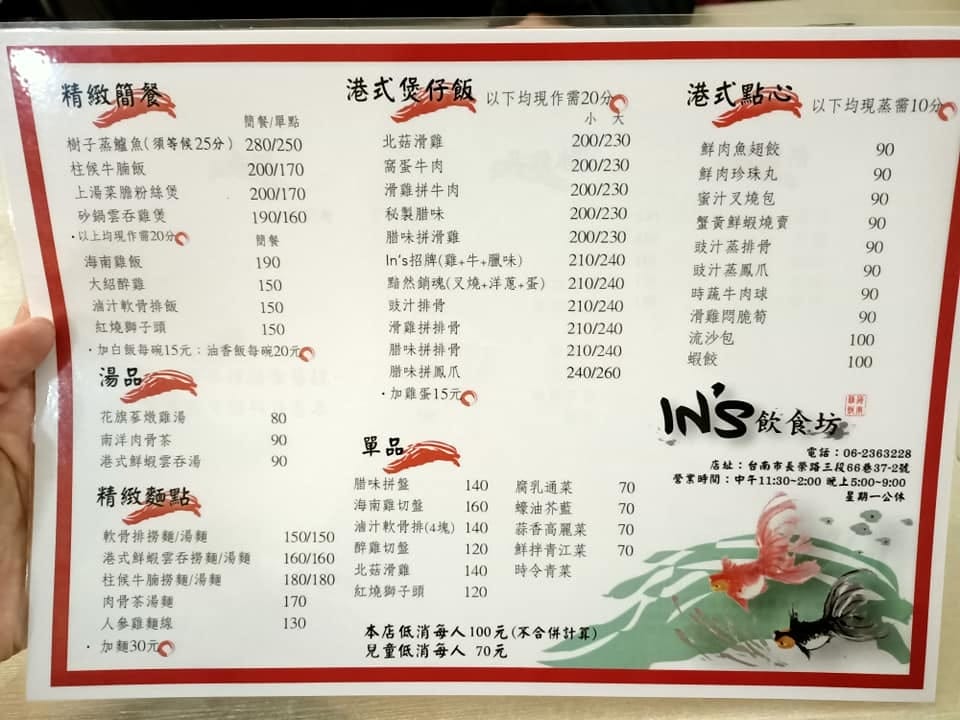 精緻簡餐
簡餐/單點
樹子蒸鱸魚(須等候25分) 280/250
柱候牛腩飯 200/170
上湯菜膽粉絲煲 200/170
砂鍋雲吞雞煲 190/160
・以上均現作需20分
簡餐
海南雞飯 190
大紹醉雞 150
滷汁軟骨排飯 150
紅燒獅子頭 150
・加白飯每碗15元；油香飯每碗20元
湯品
花旗蔘燉雞湯 80
南洋肉骨茶 90
港式鮮蝦雲吞湯 90
精緻麵點
軟骨排撈麵/湯麵 150/150
港式鮮蝦雲吞撈麵/湯麵 160/160
柱候牛腩撈麵/湯麵 180/180
肉骨茶湯麵 170
人參雞麵線 130
・加麵30元
港式煲仔飯 以下均現作需20分
小 大
北菇滑雞 200/230
窩蛋牛肉 200/230
滑雞拼牛肉 200/230
秘製腊味 200/230
腊味拼滑雞 200/230
In's招牌(雞+牛+臘味) 210/240
黯然銷魂(叉燒+洋蔥+蛋) 210/240
豉汁排骨 210/240
滑雞拼排骨 210/240
腊味拼排骨 210/240
腊味拼鳳爪 240/260
・加雞蛋15元
單品
腊味拼盤 140
海南雞切盤 160
滷汁軟骨排(4塊) 140
醉雞切盤 120
北菇滑雞 140
紅燒獅子頭 120
腐乳通菜 70
蠔油芥藍 70
蒜香高麗菜 70
鮮拌青江菜 70
時令青菜
本店低消每人100元(不合併計算)
兒童低消每人 70元
港式點心 以下均現蒸需10分
鮮肉魚翅餃 90
鮮肉珍珠丸 90
蜜汁叉燒包 90
蟹黃鮮蝦燒賣 90
豉汁蒸排骨 90
豉汁蒸鳳爪 90
時蔬牛肉球 90
滑雞悶脆筍 90
流沙包 100
蝦餃 100
IN'S飲食坊
電話：06-2363228
店址：台南市長榮路三段66巷37-2號
營業時間：中午11:30~2:00 晚上5:00~9:00
星期一公休